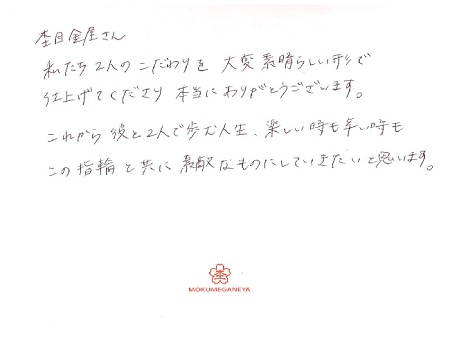 杢目金屋さん
私たち2人のこだわりを 大変素晴らしい形で
仕上げてくださり 本当にありがとうございます。
これから彼と2人で歩む人生、楽しい時も辛い時も
この指輪と共に素敵なものにしていきたいと思います。
MOKUMEGANEYA